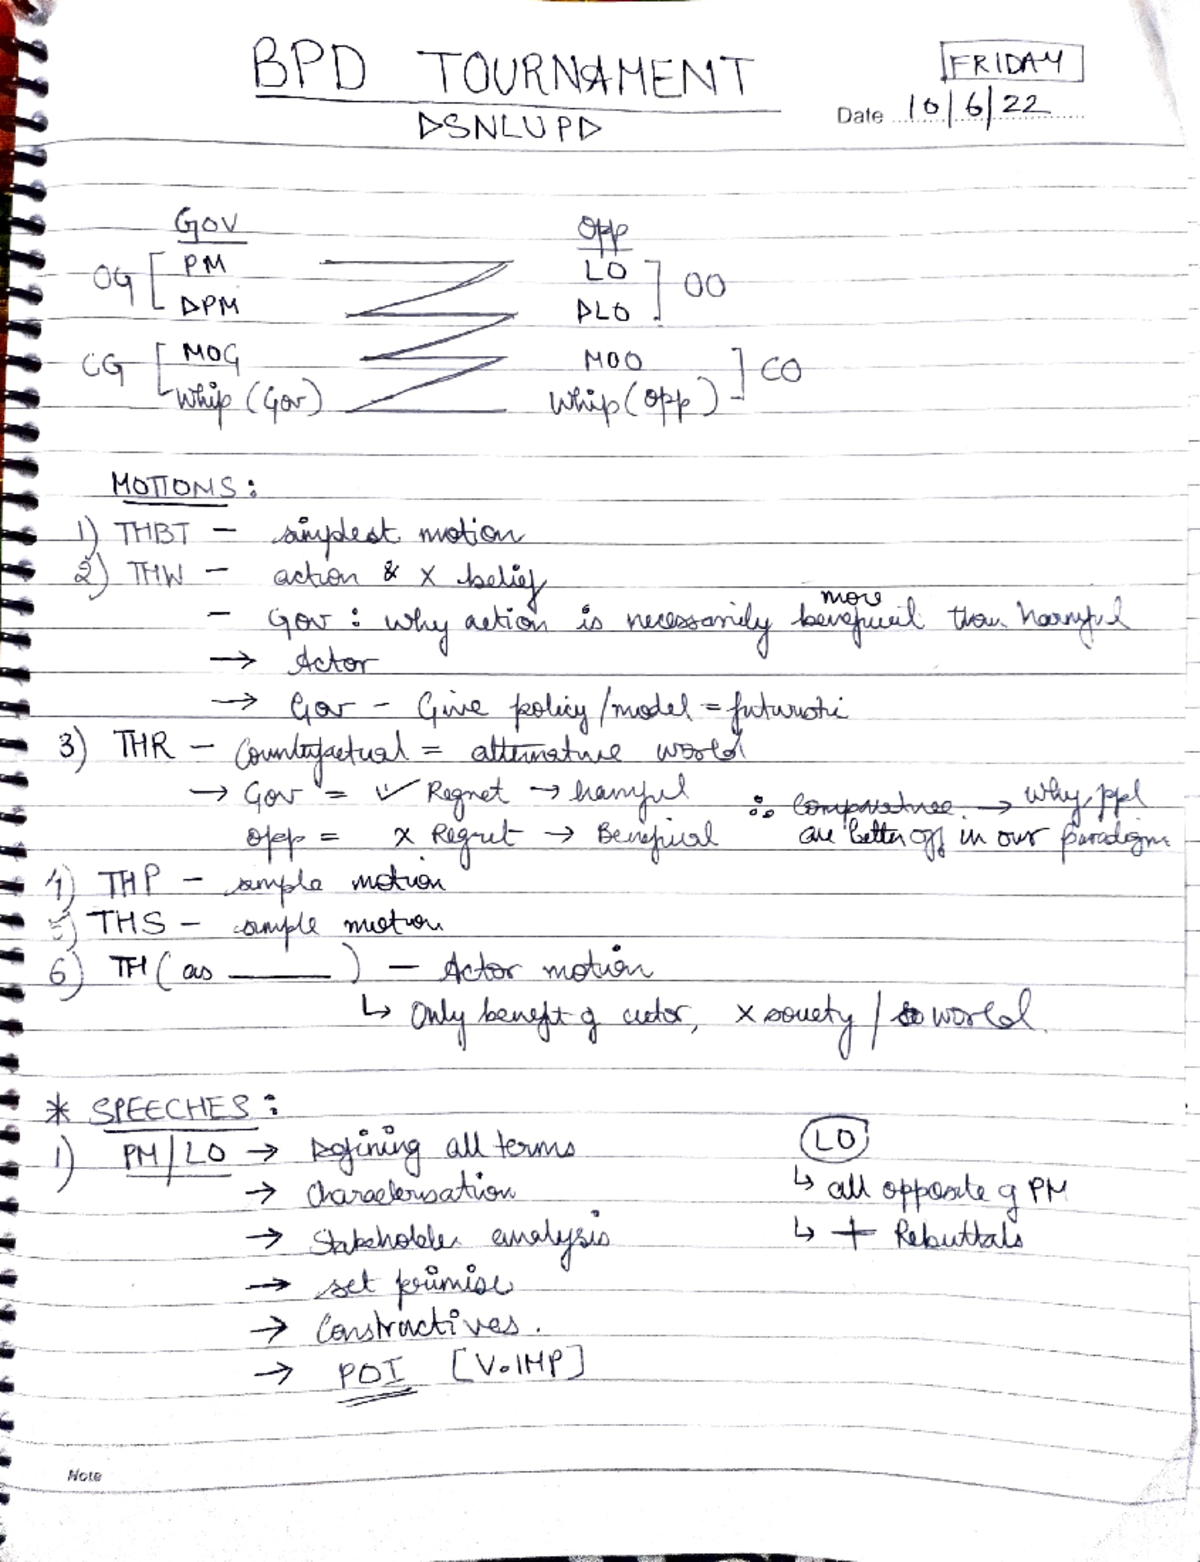 BPD TOURNAMENT
FRIDAY
Date 10/6/22
DSNLUPD
Gov Opp
OG [ PM LO ] OO
DPM DLO
CG [ MOG MOO ] CO
Whip (Gov) Whip (Opp)
MOTIONS:
1) THBT - simplest motion
2) THW - action & X belief
more
- Gov : why action is necessarily beneficial than harmful
→ Actor
→ Gov - Give policy/model = futuristi
3) THR - Counterfactual = alternative world
→ Gov = ✓ Regret → harmful ∴ Comparative → Why ppl
Opp = X Regret → Benefical are better off in our paradigm
4) THP - simple motion
5) THS - simple motion
6) TH (as ______) - Actor motion
↳ Only benefit of actor, X society / world
* SPEECHES:
1) PM/LO → Defining all terms
→ Characterisation
→ Stakeholder analysis
→ set premise
→ Constructives.
→ POI [V.IMP]
LO
↳ all opposite of PM
↳ + Rebuttals
Note